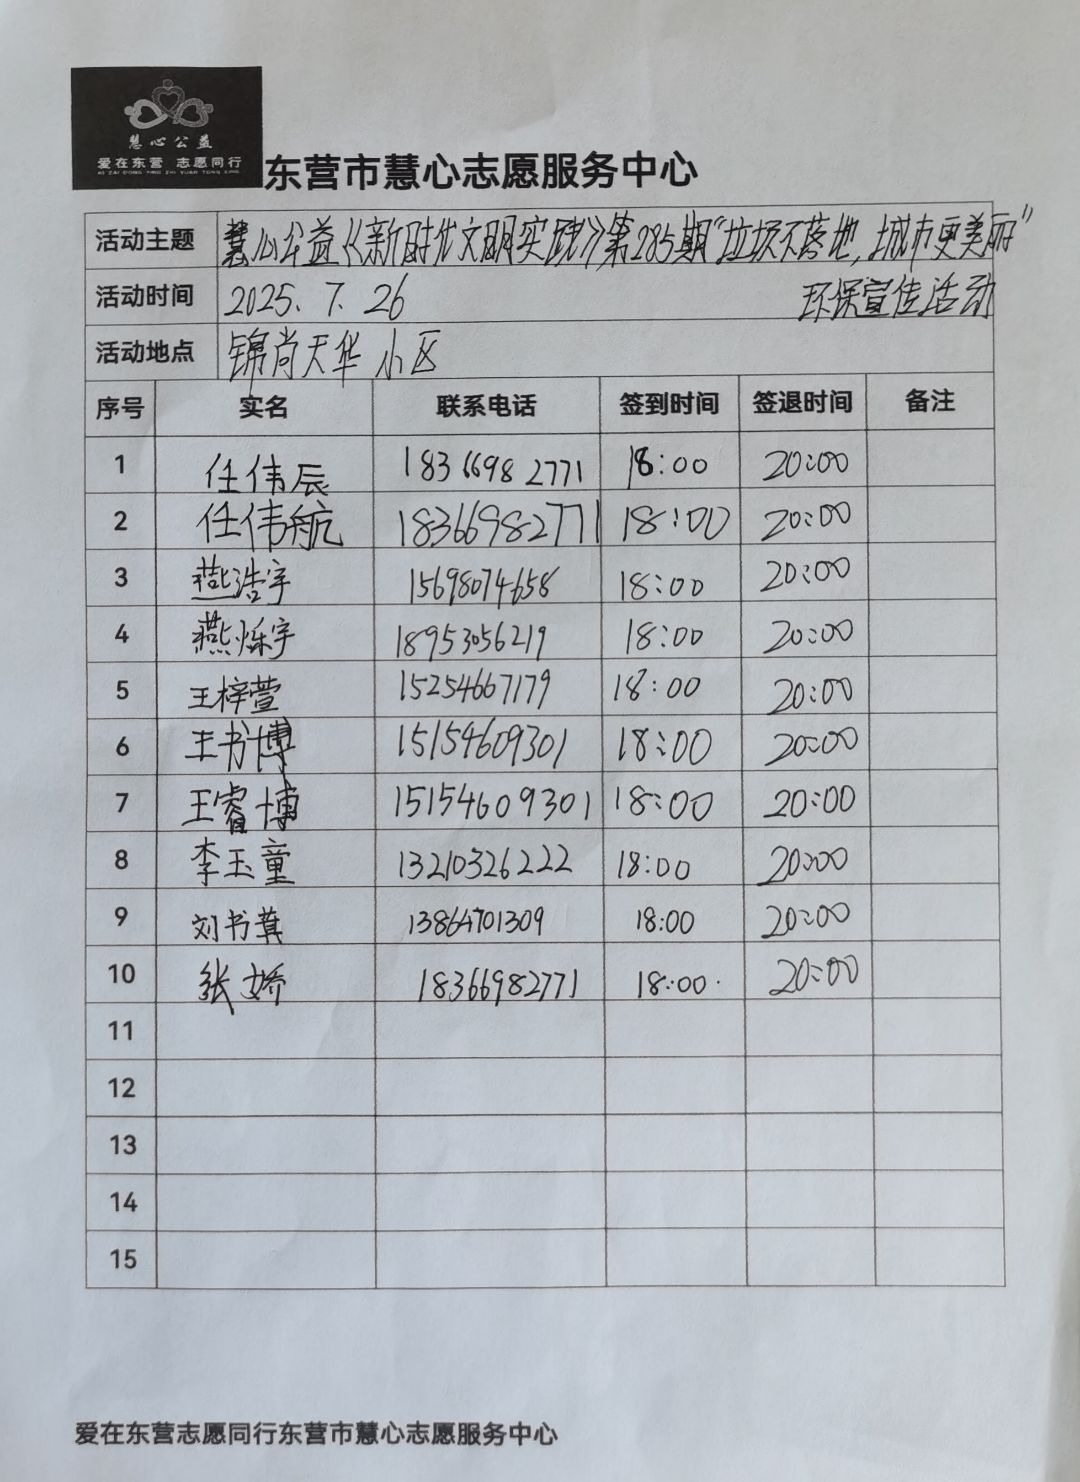 慧心公益
爱在东营 志愿同行
AI ZAI DONG YING ZHI YUAN TONG XING
东营市慧心志愿服务中心
活动主题 慧心公益《新时代文明实践》第285期“垃圾不落地,城市更美丽”
环保宣传活动
活动时间 2025.7.26
活动地点 锦尚天华小区
序号 实名 联系电话 签到时间 签退时间 备注
1 任伟辰 18366982771 18:00 20:00
2 任伟航 18366982771 18:00 20:00
3 燕浩宇 15698074658 18:00 20:00
4 燕烁宇 18953056219 18:00 20:00
5 王梓萱 15254667179 18:00 20:00
6 王书博 15154609301 18:00 20:00
7 王睿博 15154609301 18:00 20:00
8 李玉童 13210326222 18:00 20:00
9 刘书 13864701309 18:00 20:00
10 张娇 18366982771 18:00 20:00
11
12
13
14
15
爱在东营志愿同行东营市慧心志愿服务中心